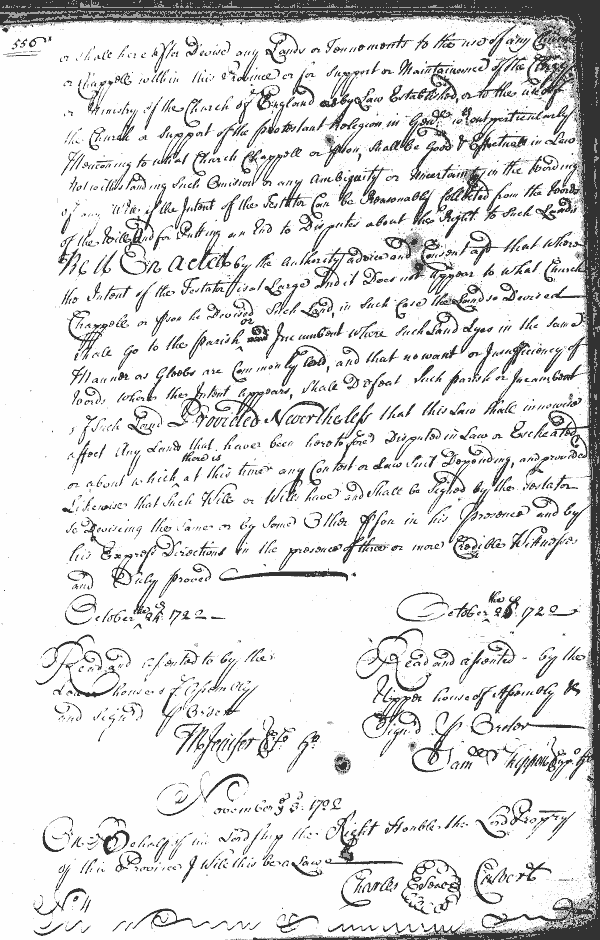 556
or shall hereafter Devise any Lands or Tennements to the use of any Church
or Chappell within this Province or for Support or Maintainence of the Clergy
or Ministry of the Church of England as by Law Established, or to the use of
the Church or Support of the protestant Religion in Genll without particularly
Mentioning to what Church Chappell or pson, shall be Good & Effectuall in Law
Notwithstanding Such Omission or any Ambiguity or Uncertainty in the Wording
of any Will if the Intent of the Testator Can be Reasonably Collected from the Words
of the Will And for Putting an End to Disputes about the Right to Such Lands
Be it Enacted by the Authority advice and Consent afd that where
the Intent of the Testator is at Large and it Does not Appear to what Church
Chappell or pson he Devised Such Land, in Such Case the Land so Devised
Shall Go to the parish or Incumbent where Such Land Lyes in the same
Manner as Gleebs are Commonly held, and that no want or Insufficiency of
Words where the Intent Appears, Shall Defeat Such parish or Incumbent
of Such Land Provided Nevertheless that this Law shall in nowise
affect Any Lands that have been heretofore Disputed in Law or Escheated
or about which there is at this time any Contest or Law Suit Depending, and provided
Likewise that Such Will or Wills have and shall be Signed by the Testator
so Devising the Same or by Some Other pson in his presence and by
his Express Directions in the presence of three or more Credible Witnesses
and Duly proved
October the 1722
October the 1722
Read and assented to by the
Lower house of Assembly
and Signed p Order
M Jenifer Clo ho
Read and assented - by the
Upper house of Assembly &
Signd p Order
Saml Skippon
November 3d 1722
On Behalf of his Lordship the Right Honble the Lord Propry
of this Province I Will this be a Law
Charles Calvert
No. 4